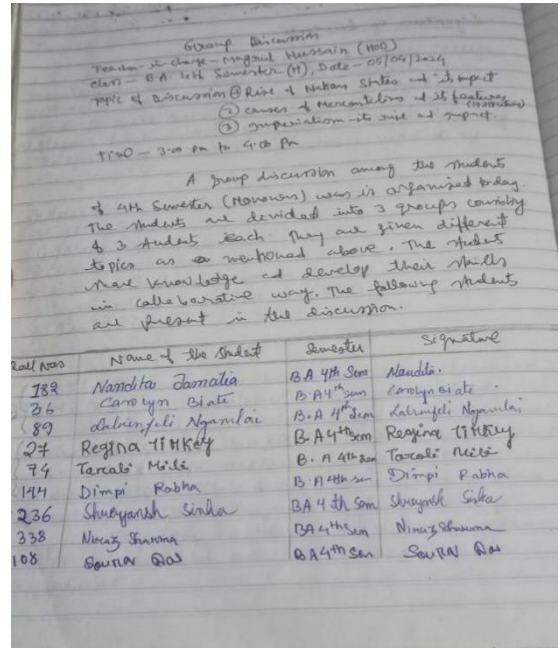 Group Discussion
Teacher-in-charge - Magsul Hussain (HOD)
Class - B.A 4th Semester (H), Date - 05/04/2024
Topic of Discussion ① Rise of Nations States and its impact
② causes of Mercantilism and its features
③ imperialism - its rise and impact.
Time - 3:00 Pm to 4:00 Pm
A group discussion among the students
of 4th Semester (Honours) was is organised today.
The students are devided into 3 groups consisting
of 3 students each. They are given different
topics as mentioned above. The students
share knowledge and develop their skills
in collaborative way. The following students
are present in the discussion.
Roll Nos Name of the Student Semester Signature
182 Nandita Jamatia BA 4th Sem Nandita.
36 Carolyn Biate B.A 4th Sem Carolyn Biate
89 Lalrinfeli Ngamlai B.A 4th Sem Lalrinfeli Ngamlai
27 Regina Tirkey B.A 4th Sem Regina Tirkey
74 Tarcali Mili B.A 4th Sem Tarcali Mili
144 Dimpi Rabha B.A 4th Sem Dimpi Rabha
236 Shreyansh Sinha BA 4th Sem Shreyansh Sinha
338 Niraz Sharma BA 4th Sem Niraz Sharma
108 Sourav Das BA 4th Sem Sourav Das